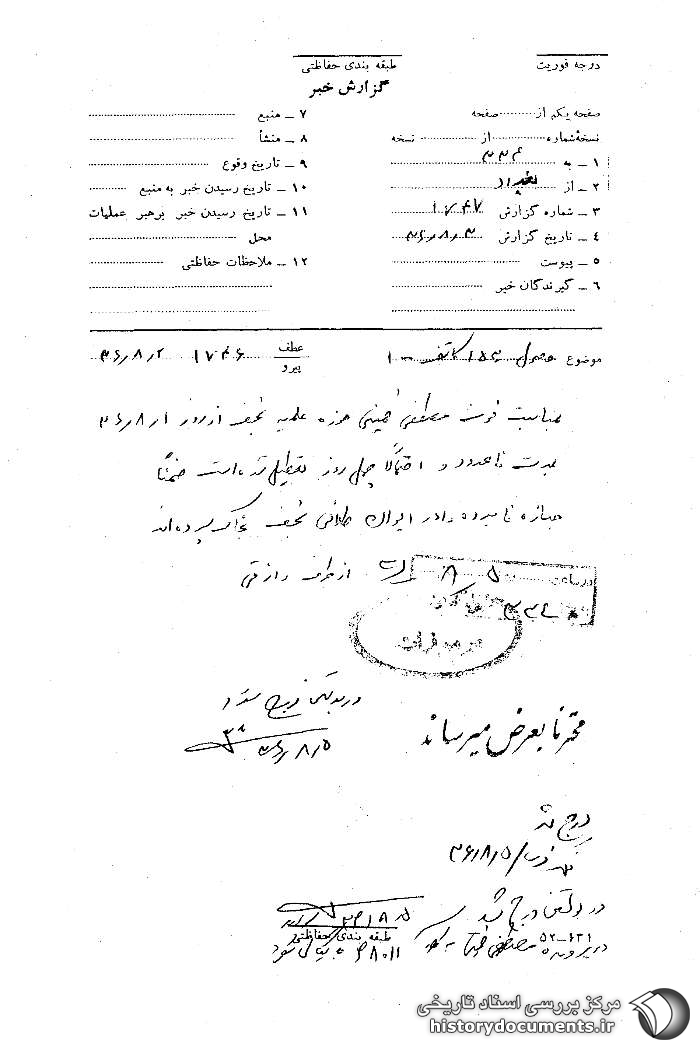 درجه فوریت
طبقه بندی حفاظتی
گزارش خبر
صفحه یکم از ........ صفحه
نسخه شماره ........ از ........ نسخه
۱ – به ۳۳۴
۲ – از بغداد
۳ – شماره گزارش ۱۷۴۷
۴ – تاریخ گزارش ۳۶٫۸٫۳
۵ – پیوست
۶ – گیرندگان خبر
۷ – منبع
۸ – منشأ
۹ – تاریخ وقوع
۱۰ – تاریخ رسیدن خبر به منبع
۱۱ – تاریخ رسیدن خبر برهبر عملیات
محل
۱۲ – ملاحظات حفاظتی
موضوع
عطف
پیرو
۱۷۴۶ ۳۶٫۸٫۲
بمناسبت فوت مصطفی خمینی حوزه علمیه نجف از روز ۳۶٫۸٫۱
بمدت نامحدود و احتمالا چهل روز تعطیل شده است ضمناً
جنازه نامبرده را در ایوان طلائی نجف بخاک سپرده‌اند
از طرف
در بولتن درج شود
۳۶٫۸٫۵
محترما بعرض میرساند
درج شد
۳۶٫۸٫۵
در بولتن درج شد
۳۶٫۸٫۵
طبقه بندی حفاظتی
۵۲–۶۳۱
در پرونده مصطفی
مرکز بررسی اسناد تاریخی
historydocuments.ir